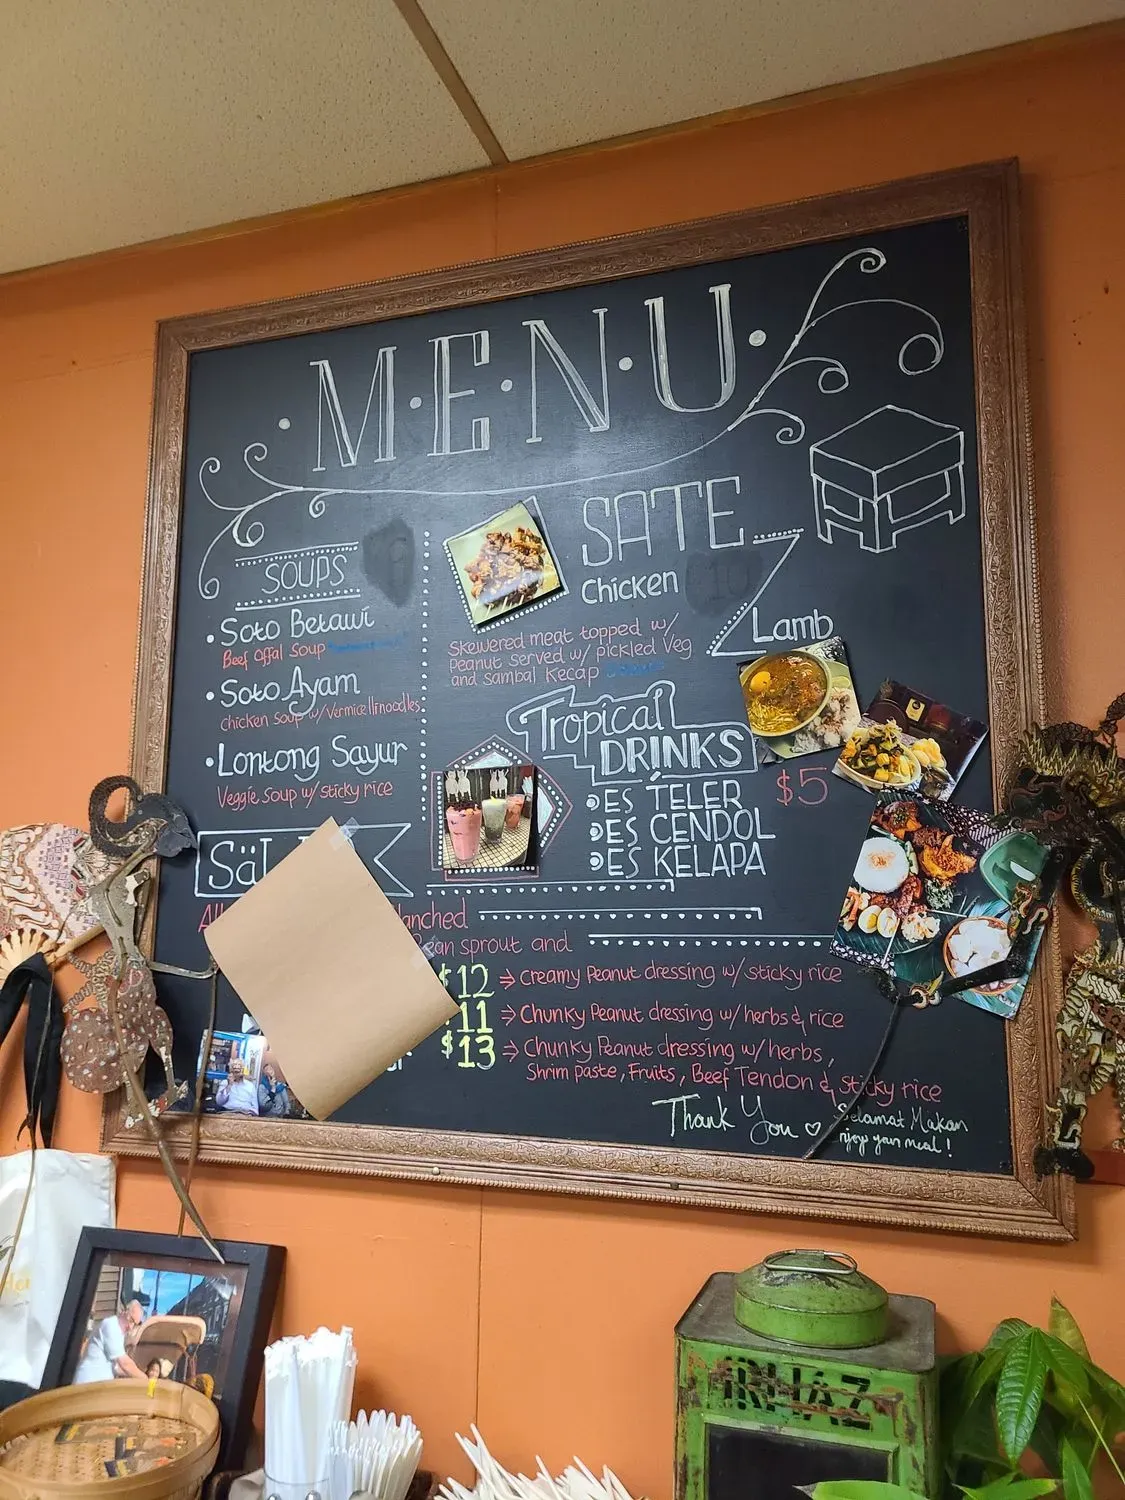 M.E.N.U.
SOUPS
Soto Betawi
Beef Offal Soup
Soto Ayam
Chicken Soup w/Vermicelli noodles
Lontong Sayur
Veggie Soup w/ sticky rice
SATE
Chicken
Lamb
Skewered meat topped w/
Peanut served w/ pickled Veg
and sambal Kecap
Tropical
DRINKS
ES TELER
$5
ES CENDOL
ES KELAPA
Bean sprout and
$12 Creamy Peanut dressing w/ sticky rice
$11 Chunky Peanut dressing w/ herbs & rice
$13 Chunky Peanut dressing w/ herbs,
Shrim paste, Fruits, Beef Tendon & sticky rice
Thank You
Selamat Makan
njoy your meal!